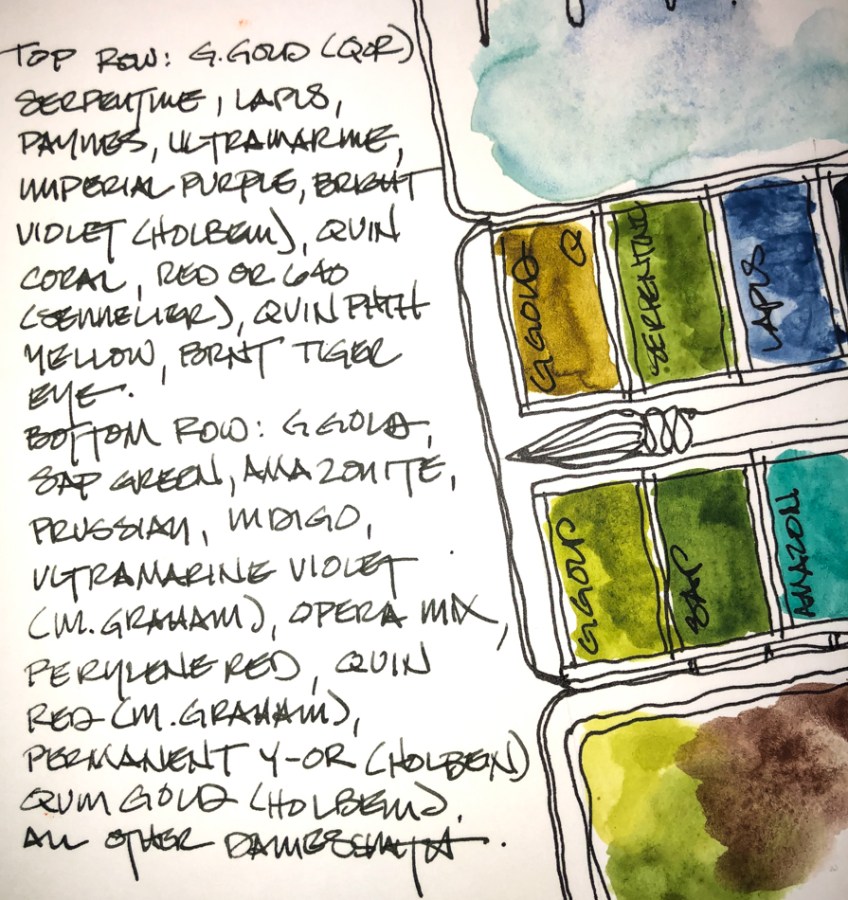 TOP ROW: G.GOLD (QOR)
SERPENTINE, LAPIS,
PAYNES, ULTRAMARINE,
IMPERIAL PURPLE, BRIGHT
VIOLET (HOLBEIN), QUIN
CORAL, RED OR 640
(SENNELIER), QUIN PHTH
YELLOW, BRNT TIGER
EYE.
BOTTOM ROW: G GOLD,
SAP GREEN, AMAZONITE,
PRUSSIAN, INDIGO,
ULTRAMARINE VIOLET
(M.GRAHAM), OPERA MIX,
PERYLENE RED, QUIN
RED (M.GRAHAM),
PERMANENT Y-OR (HOLBEIN)
QUIN GOLD (HOLBEIN),
ALL OTHER DANIEL SMITH.
G GOLD Q
SERPENTINE
LAPIS
G GOLD
SAP
AMAZON